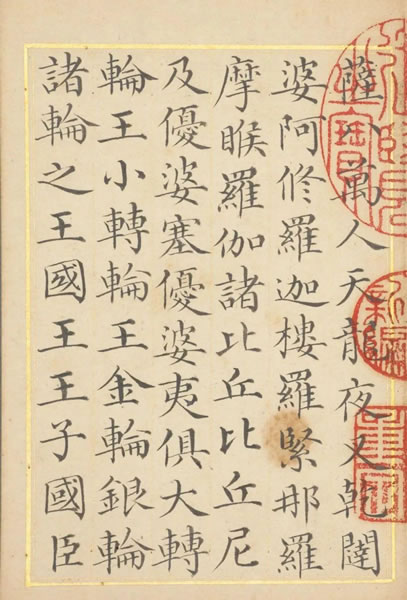 薩八萬人天龍夜叉乾闥
婆阿修羅迦樓羅緊那羅
摩睺羅伽諸比丘比丘尼
及優婆塞優婆夷俱大轉
輪王小轉輪王金輪銀輪
諸輪之王國王王子國臣